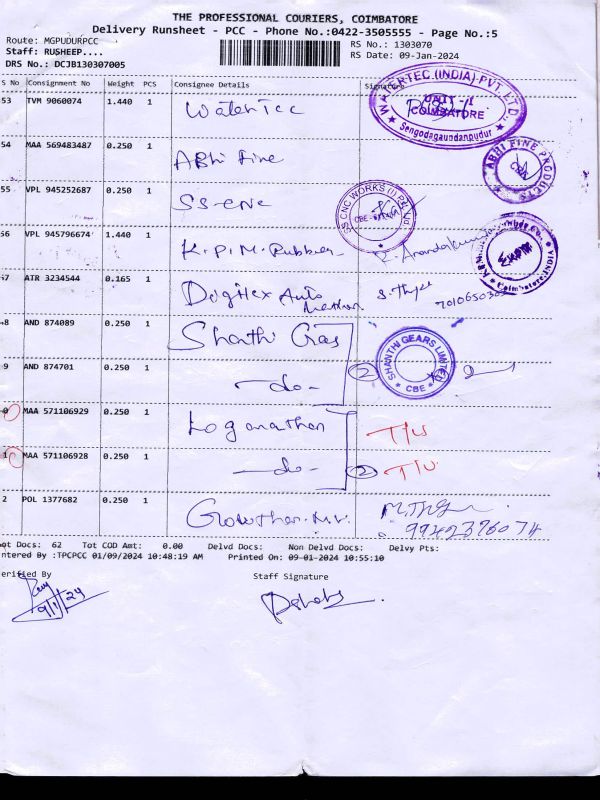 THE PROFESSIONAL COURIERS, COIMBATORE
Delivery Runsheet - PCC - Phone No.:0422-3505555 - Page No.:5
Route: MGPUDURPCC
RS No.: 1303070
Staff: RUSHEEP....
RS Date: 09-Jan-2024
DRS No.: DCJB130307005
S No Consignment No Weight PCS Consignee Details Signature
53 TVM 9060074 1.440 1 WaterTec
WATERTEC (INDIA) PVT. LTD. UNIT - I COIMBATORE Sengodagaundanpudur
54 MAA 569483487 0.250 1 Abhi Fine
ABHI FINE PRODUCTS CBE
55 VPL 945252687 0.250 1 SS-cnc
SS CNC WORKS (I) Pvt. Ltd.
56 VPL 945796674 1.440 1 K.P.M. Rubber
Coimbatore
57 ATR 3234544 0.165 1 Digitex Auto
8 AND 874089 0.250 1 Shanthi Gears
SHANTHI GEARS LIMITED CBE
9 AND 874701 0.250 1 -do- 2
0 MAA 571106929 0.250 1 Loganathan
1 MAA 571106928 0.250 1 -do- 2
2 POL 1377682 0.250 1
9942376074
ot Docs: 62 Tot COD Amt: 0.00 Delvd Docs: Non Delvd Docs: Delvy Pts:
ntered By :TPCPCC 01/09/2024 10:48:19 AM Printed On: 09-01-2024 10:55:10
erified By Staff Signature
9/1/24